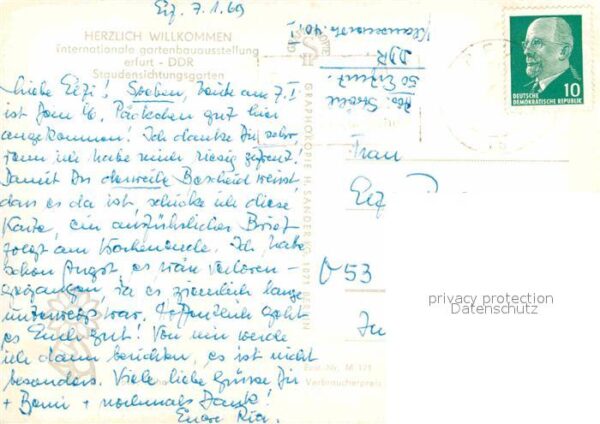 Ef, 7. 1. 69
HERZLICH WILLKOMMEN
internationale gartenbauausstellung
erfurt - DDR
Staudensichtungsgarten
Liebe Eefi! Soeben, heute am 7. I
ist Dein W. Päckchen gut hier
angekommen! Ich danke Dir sehr,
denn ich habe mich riesig gefreut!
Damit Du derweile Bescheid weisst,
dass es da ist, schicke ich diese
Karte, ein ausführlicher Brief
folgt am Wochenende. Ich habe
schon Angst, es wäre verloren-
gegangen, da es ziemlich lange
unterwegs war. Hoffentlich geht
es Euch gut! Von mir werde
ich dann berichten, es ist nicht
besonders. Viele liebe Grüsse Dir
+ + nochmals Dank!
Eure Ria.
Abs:
50 Erfurt
DDR
GRAPHOKOPIE H. SANDER KG, 1071 BERLIN
Best.-Nr. M 171
Verbraucherpreis
DEUTSCHE
DEMOKRATISCHE REPUBLIK
10
Frau
O 53
In
privacy protection
Datenschutz